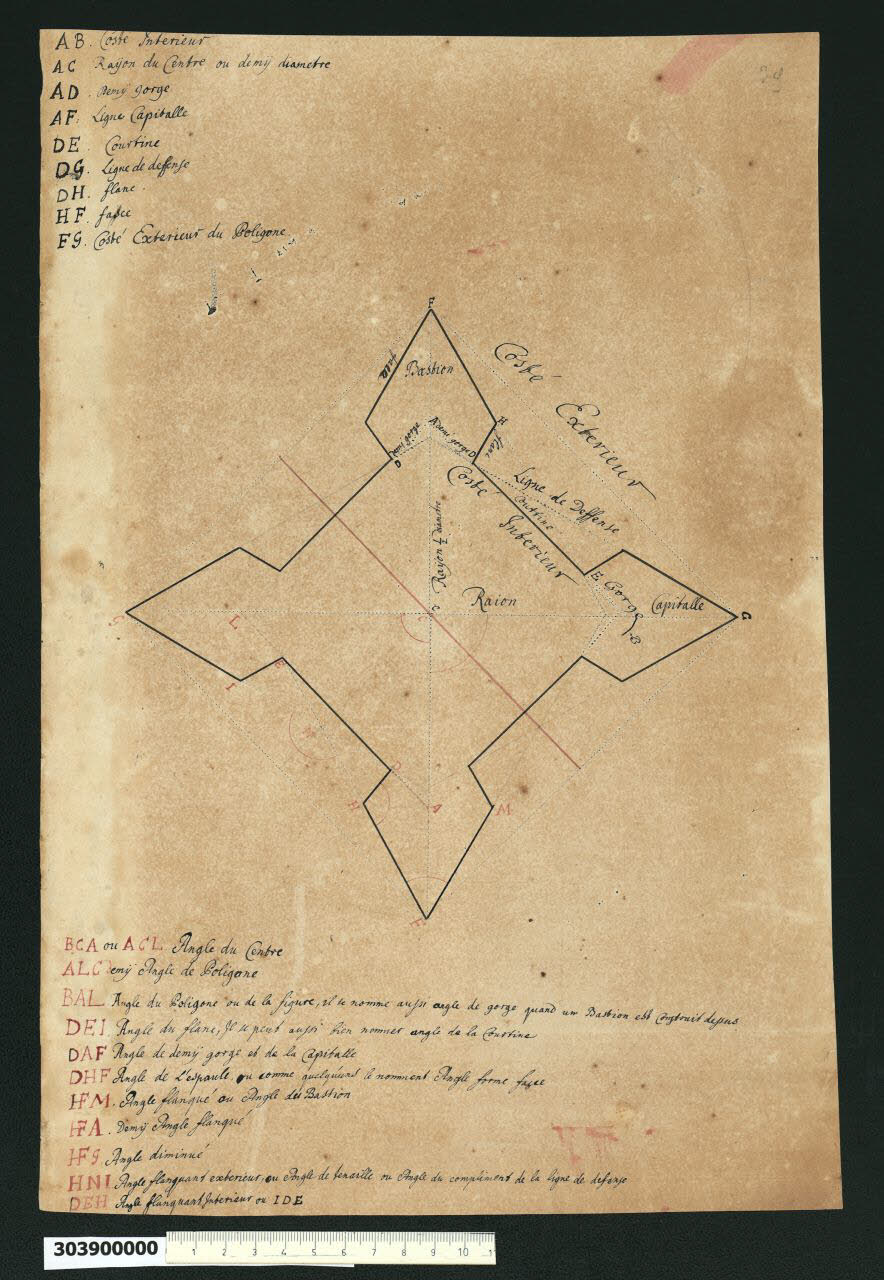 AB. Costé Interieur
AC Raÿon du Centre ou demÿ diametre
AD. Demÿ gorge
AF. Ligne Capitalle
DE Courtine
DG. Ligne de deffense
DH. flanc.
HF. fasce
FG. Costé Exterieur du Poligone
F
fasce
Bastion
Costé Exterieur
H
flanc
A
demi gorge D
D
Costé Interieur
Ligne de Deffense
Courtine
Raÿon ½ diametre
E Gorge
B
Capitalle
G
C
Raion
C
G
L
I
E
N
D
H
A
M
F
BCA ou ACL Angle du Centre
ALC Demÿ Angle de Poligone
BAL Angle du Poligone ou de la figure, il se nomme aussi angle de gorge quand un Bastion est Construit dessus
DEI. Angle du flanc, Il se peut aussi bien nommer angle de la Courtine
DAF Angle de demÿ gorge et de la Capitalle
DHF Angle de L'espaule, ou comme quelquuns le nomment Angle forme face
HFM. Angle flanqué ou Angle des Bastion
HFA. Demÿ Angle flanqué
HFG Angle diminué
HNI Angle flanquant exterieur, ou Angle de tenaille ou Angle du compliment de la ligne de defense
DEH Angle flanquant Interieur ou IDE
303900000
1 2 3 4 5 6 7 8 9 10